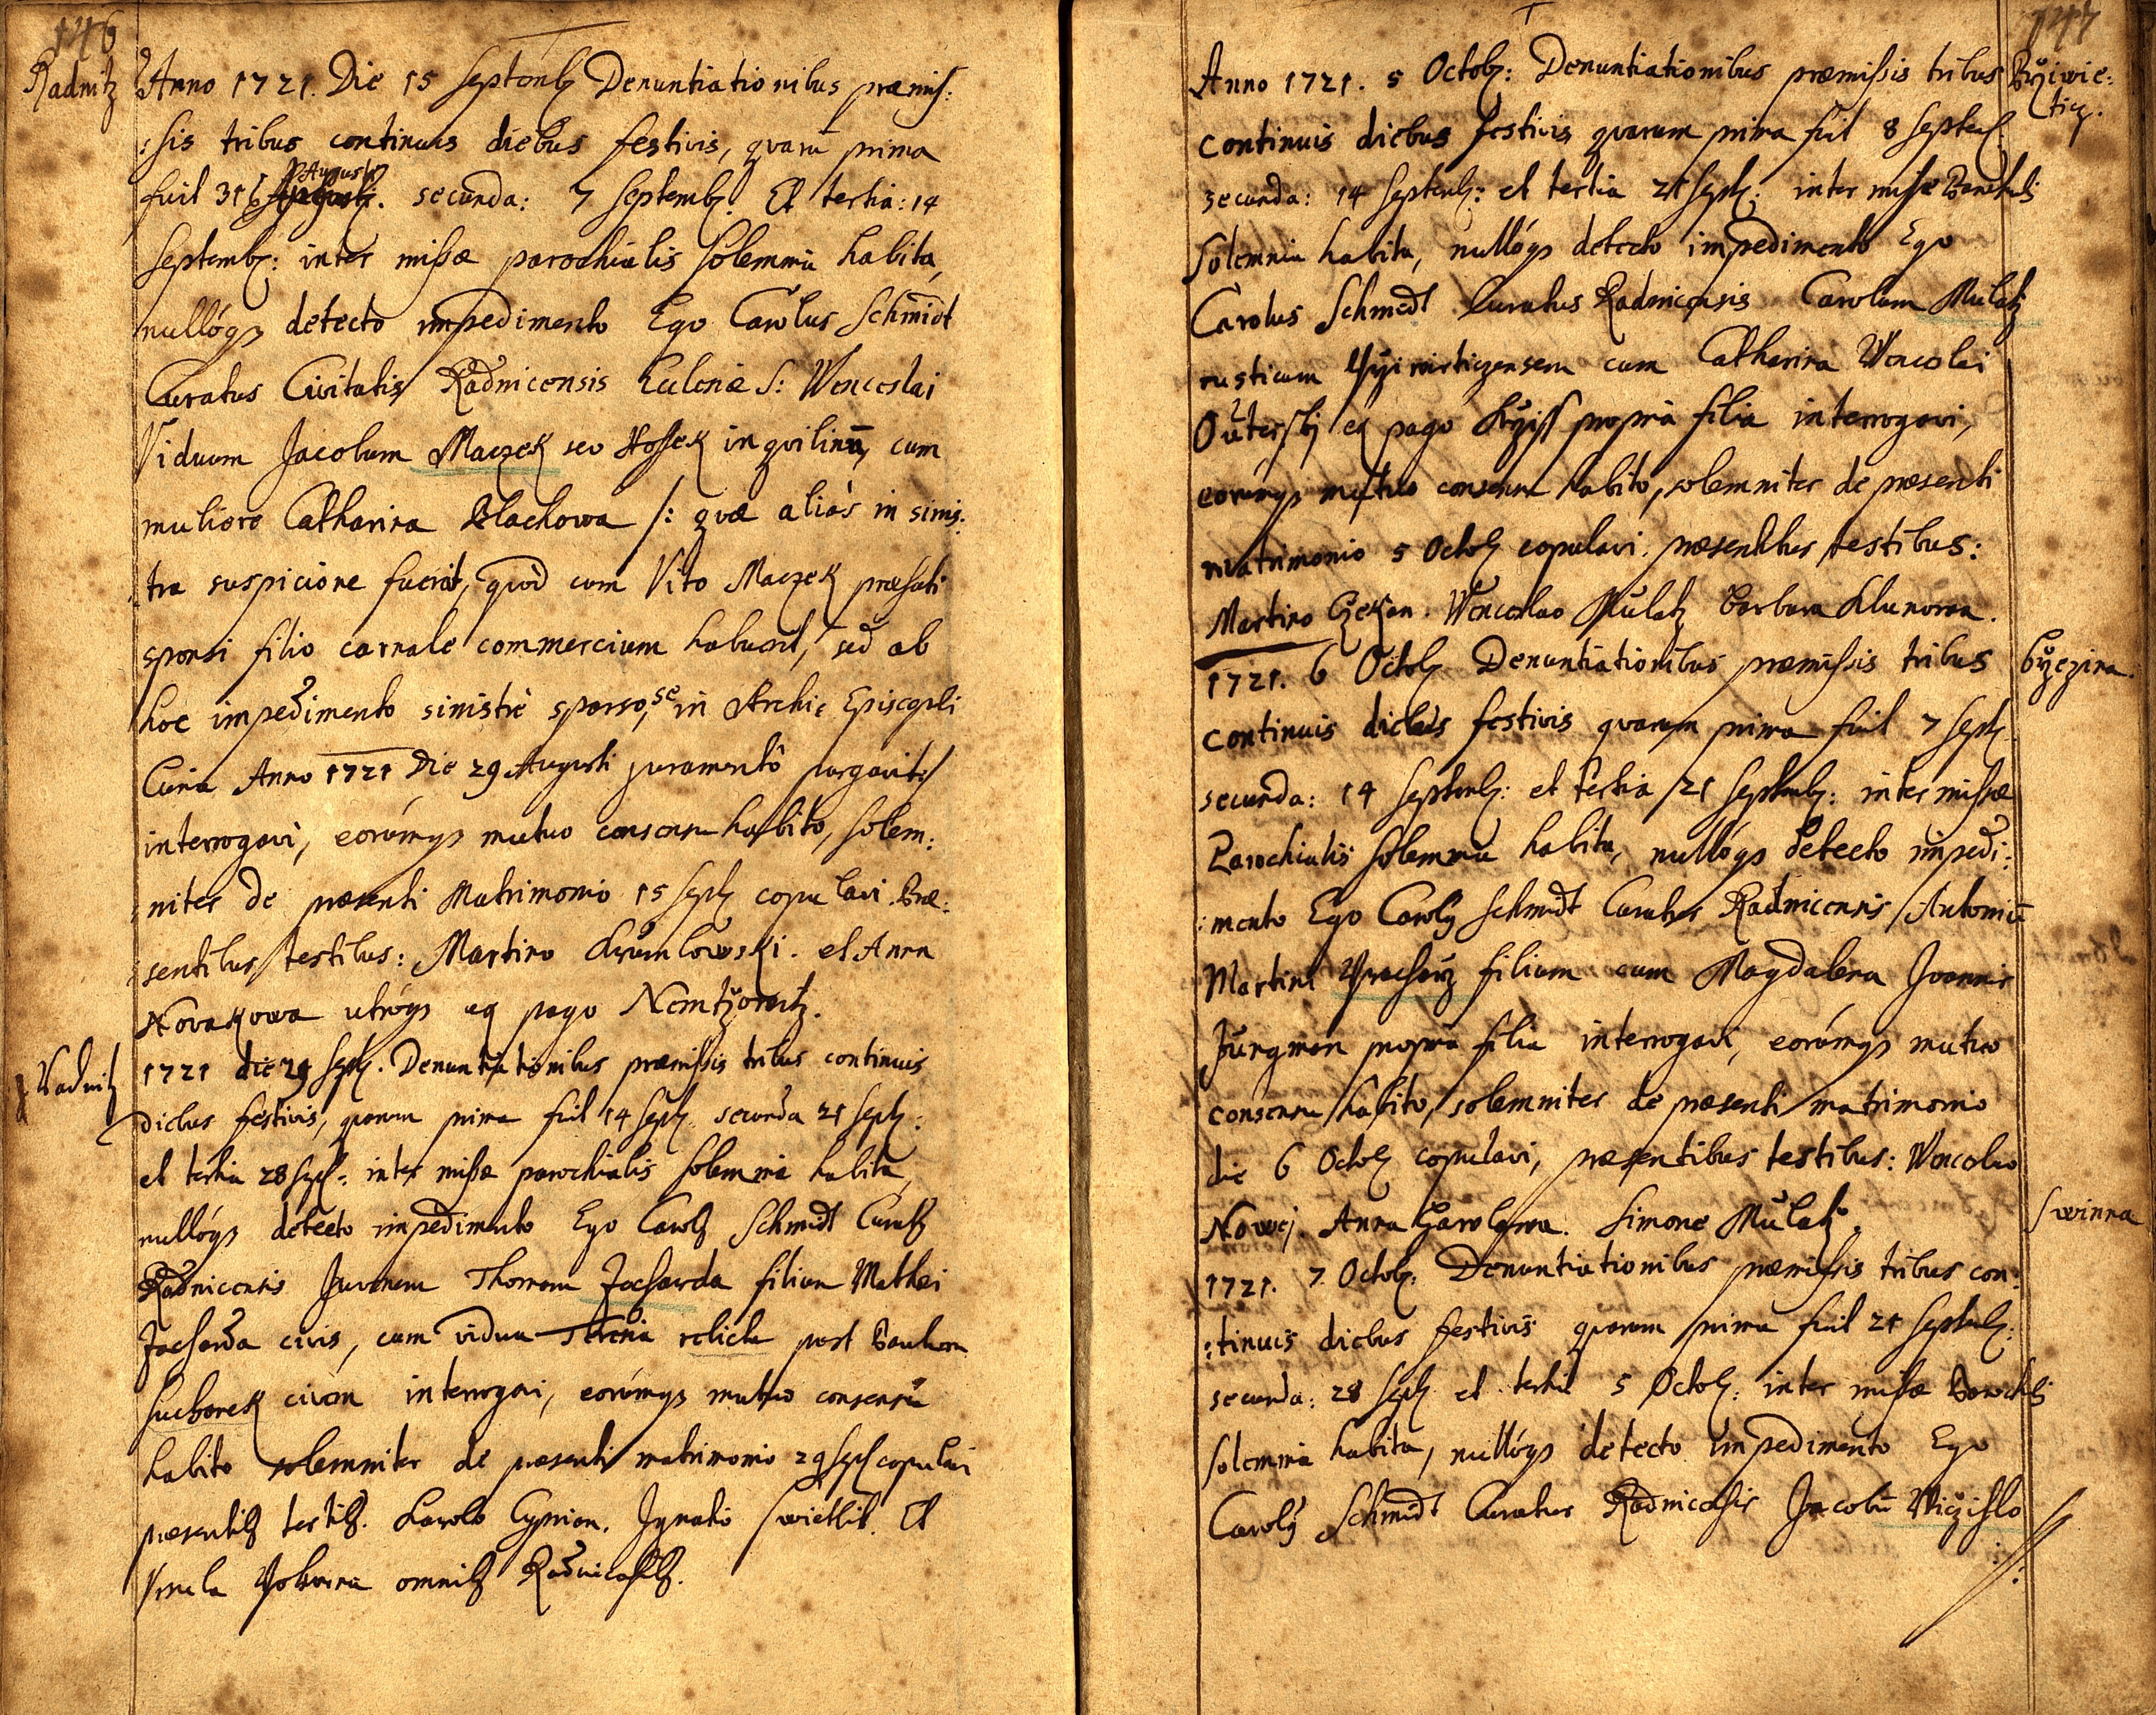 146
Radnitz
Anno 1721. Die 15 Septemb Denuntiationibus præmis:
:sis tribus continuis diebus festivis, qvarū prima
fuit 31 Augusti. secunda: 7 Septemb. Et tertia: 14
Septemb: inter missæ parochialis solemnia habita,
nullóqs detecto impedimento Ego Carolus Schmidt
Curatus Civitatis Radnicensis Ecclesiæ S: Wenceslai
Viduum Jacobum Maczek seu Hossek inqvilinū, cum
muliere Catharina Blachowa /: qvæ aliàs in sinis:
:tra suspicione fuerat, quòd cum Vito Maczek præfati
sponsi filio carnale commercium habuerit, sed ab
hoc impedimento sinistrè sparso, se in Archi Episcopali
Curia Anno 1721 Die 29 Augusti juramentô purgavit:/
interrogavi, eorúmqs mutuo consensu habito, solem:
:niter de præsenti Matrimonio 15 Sept copulavi. Præ:
sentibus testibus: Martino Krumlowski. et Anna
Novakowa utróqs ex pago Nemtzowitz.
Radnitz
1721 die 29 Sept. Denuntiationibus præmissis tribus continuis
diebus festivis, quarum prima fuit 14 Sept. secunda 21 Sept:
et tertia 28 Sept: inter missæ parochialis solemnia habita,
nullóqs detecto impedimento Ego Carolg Schmidt Curatg
Radnicensis Juvenem Thomam Jacharda filium Mathei
Jacharda civis, cum vidua relicta post
Suchorek civem interrogavi, eorúmqs mutuo consensu
habito solemniter de præsenti matrimonio 29 Sept copulavi
præsentibg testibg. Carolo Cyprian. Ignatio Swietlik. Et
omnibg Radnicensibg.
147
Anno 1721. 5 Octob: Denuntiationibus præmissis tribus
Prziwie:
ticz.
continuis diebus festivis quarum prima fuit 8 Septemb.
secunda: 14 Septemb: et tertia 21 Sept: inter missæ Parochialis
solemnia habita, nullóqs detecto impedimento Ego
Carolus Schmidt Curatus Radnicensis Carolum Mulatz
rusticum Prziwieticzensem cum Catharina Wenceslai
ex pago propria filia interrogavi,
eorúmqs mutuo consensu habito, solemniter de præsenti
matrimonio 5 Octob copulavi. præsentibus testibus:
Martino Czekan. Wenceslao Mulatz Barbara Klunowa.
1721. 6 Octob Denuntiationibus præmissis tribus
Brzezina.
continuis diebus festivis quarum prima fuit 7 Sept
secunda: 14 Septemb: et tertia 21 Septemb: inter missæ
Parochialis solemnia habita, nullóqs detecto impedi:
:mento Ego Carolg Schmidt Curatus Radnicensis Antoniū
Martini filium cum Magdalena Joannis
Jungman propria filia interrogavi, eorúmqs mutuo
consensu habito, solemniter de præsenti matrimonio
die 6 Octob copulavi, præsentibus testibus: Wenceslao
Nowej. Anna Simone Mulatz.
Swinna
1721. 7 Octob: Denuntiationibus præmissis tribus con:
:tinuis diebus festivis quarum prima fuit 21 Septemb:
secunda: 28 Sept et tertia 5 Octob: inter missæ Parochialis
solemnia habita, nullóqs detecto impedimento Ego
Carolg Schmidt Curatus Radnicensis Jacobū